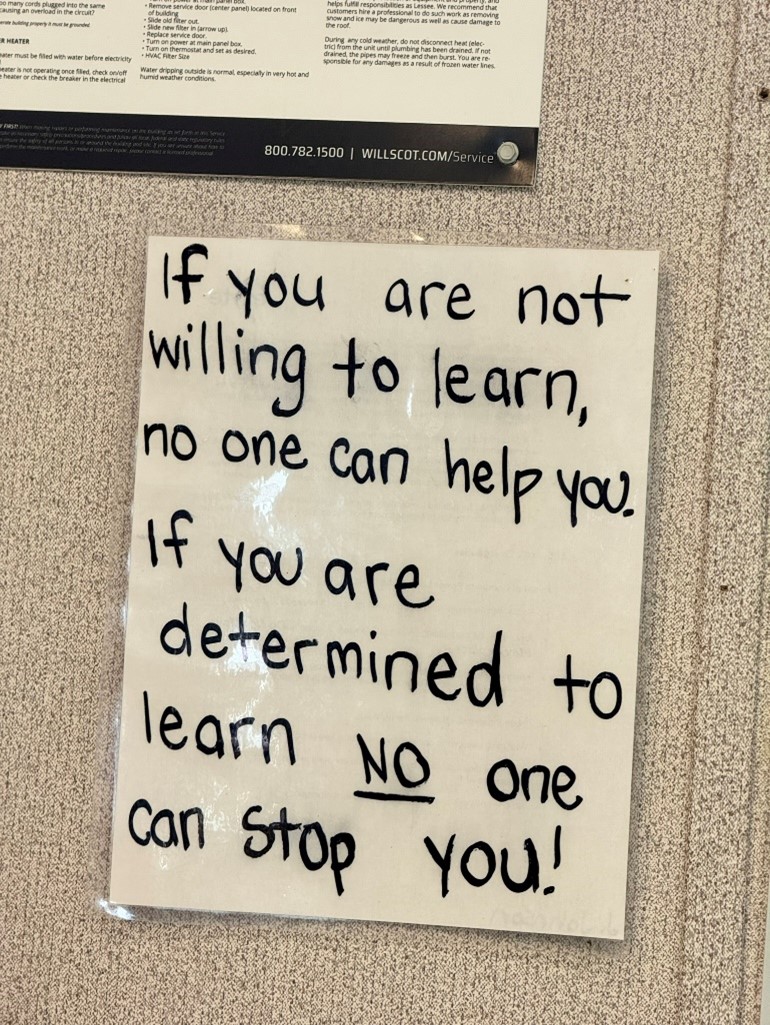 oo many cords plugged into the same
causing an overload in the circuit?
building properly it must be grounded.
R HEATER
eater must be filled with water before electricity
eater is not operating once filled, check on/off
heater or check the breaker in the electrical
• Remove service door (center panel) located on front
of building
• Slide old filter out.
• Slide new filter in (arrow up).
• Replace service door.
• Turn on power at main panel box.
• Turn on thermostat and set as desired.
• HVAC Filter Size
Water dripping outside is normal, especially in very hot and
humid weather conditions.
helps fulfill responsibilities as Lessee. We recommend that
customers hire a professional to do such work as removing
snow and ice may be dangerous as well as cause damage to
the roof.
During any cold weather, do not disconnect heat (elec-
tric) from the unit until plumbing has been drained. If not
drained, the pipes may freeze and then burst. You are re-
sponsible for any damages as a result of frozen water lines.
FIRST!
800.782.1500 | WILLSCOT.COM/Service
If you are not
willing to learn,
no one can help you.
If you are
determined to
learn NO one
can stop you!